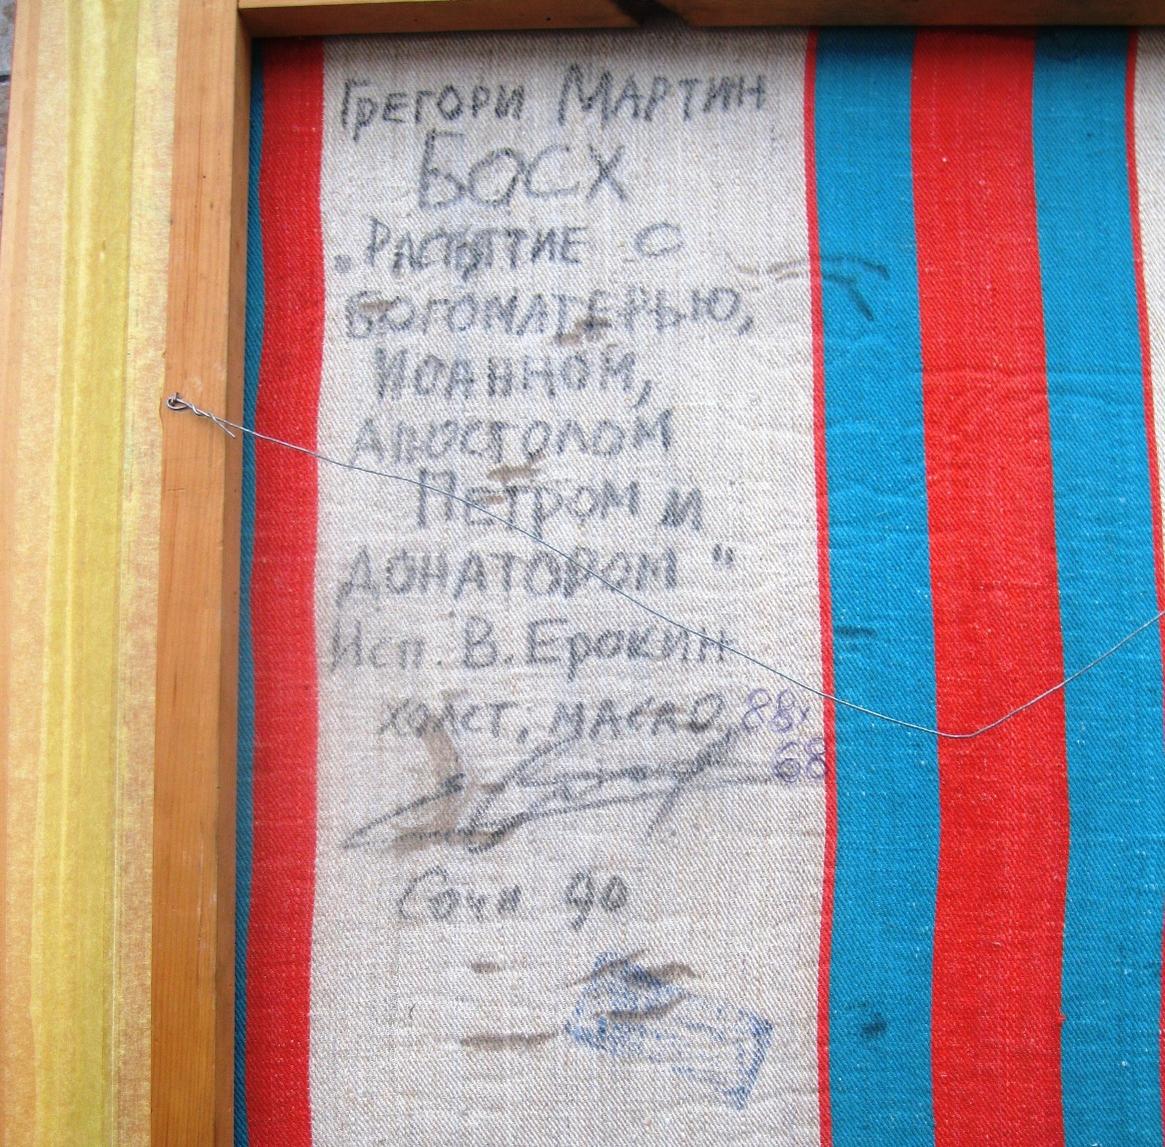 Грегори Мартин
Босх
„Распятие с
Богоматерью,
Иоанном,
Апостолом
Петром и
Донатором"
Исп. В. Ерокин
холст, масло, 88х
68
Сочи 90